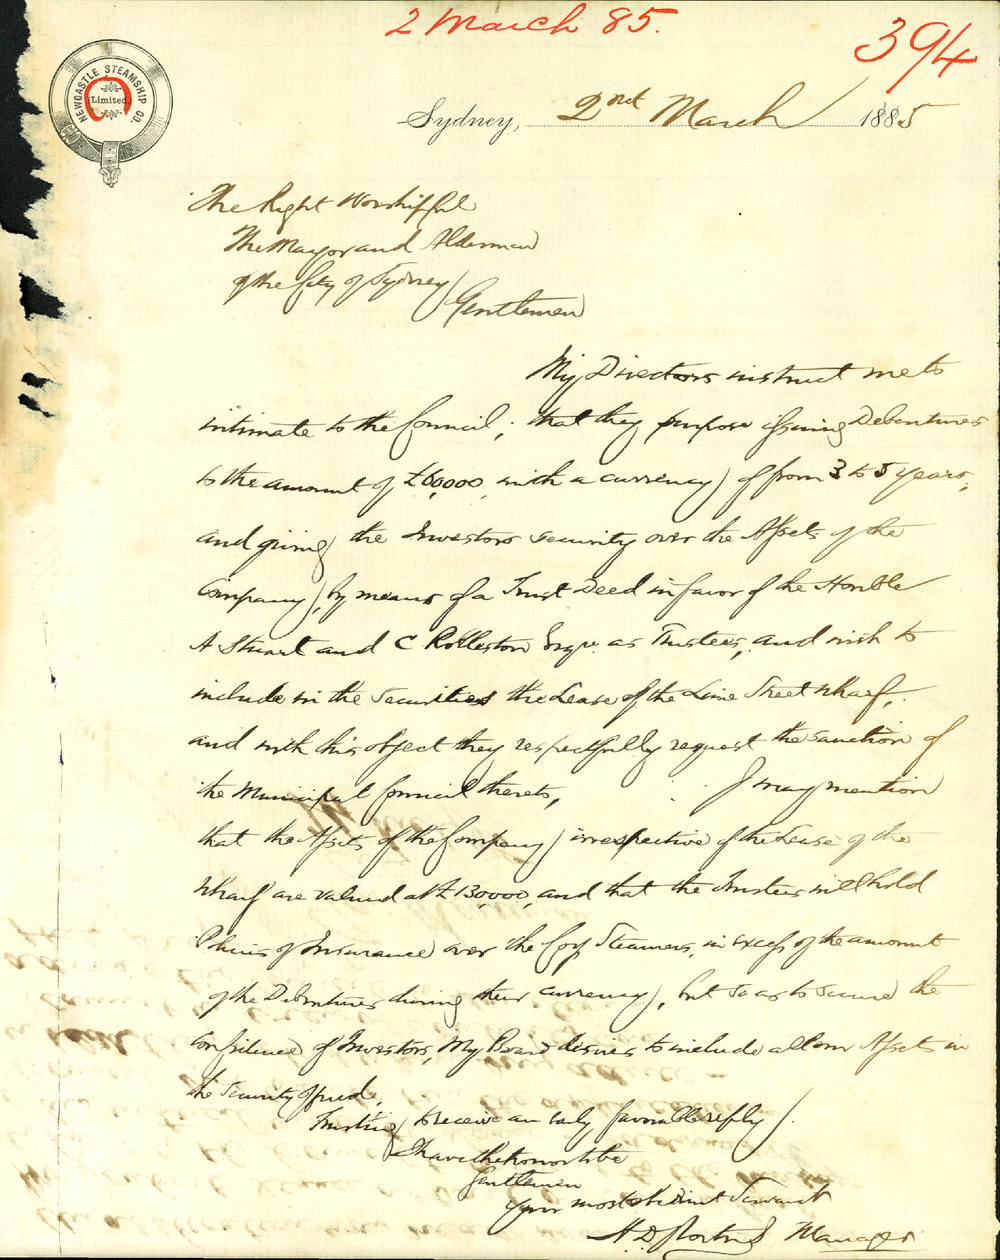 2 March 85.
394
NEWCASTLE STEAMSHIP CO
Limited.
Sydney, 2nd March 1885
The Right Worshipful
The Mayor and Aldermen
of the City of Sydney
Gentlemen
My Directors instruct me to
intimate to the Council, that they purpose issuing Debentures
to the amount of £60,000, with a currency of from 3 to 5 years,
and giving the Investors security over the Assets of the
Company, by means of a Trust Deed in favor of the Honble
A Stuart and C Rolleston Esqre. as Trustees, and wish to
include in the Securities the Lease of the Lime Street Wharf,
and with this object they respectfully request the sanction of
the Municipal Council thereto, I may mention
that the Assets of the Company irrespective of the Lease of the
Wharf are valued at £130,000, and that the Trustees will hold
Policies of Insurance over the Coys Steamers, in excess of the amount
of the Debentures during their currency, but so as to secure the
Confidence of Investors, My Board desires to include all our Assets in
the Security offered,
Trusting to receive an early favorable reply.
I have the honor to be
Gentlemen
Your most obedient Servant
Manager